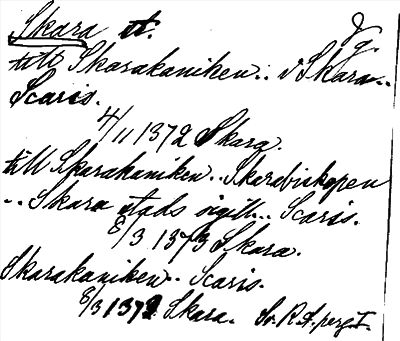 Skara st.
till Skarakaniken.. i Skara..
Scaris.
4/11 1372 Skara.
till Skarakaniken.. Skarabiskopen
.. Skara stads sigill... Scaris.
8/3 1373 Skara.
Skarakaniken.. Scaris.
8/3 1372 Skara. Sv. R. A. perg.